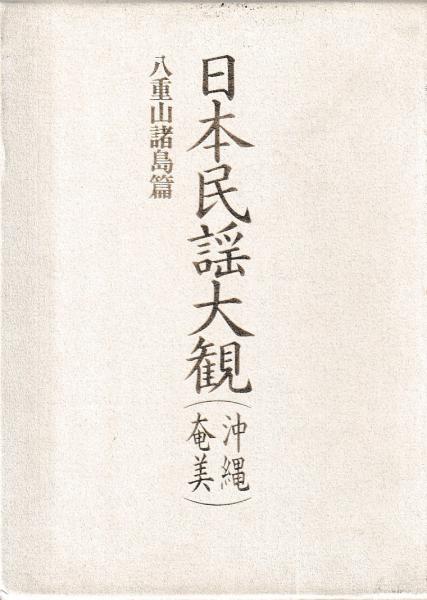 日本民謡大観(沖縄奄美)
八重山諸島篇